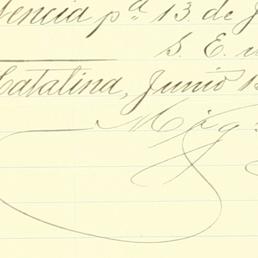 dencia pª 13. de J
S. E. u
Catalina, Junio 1